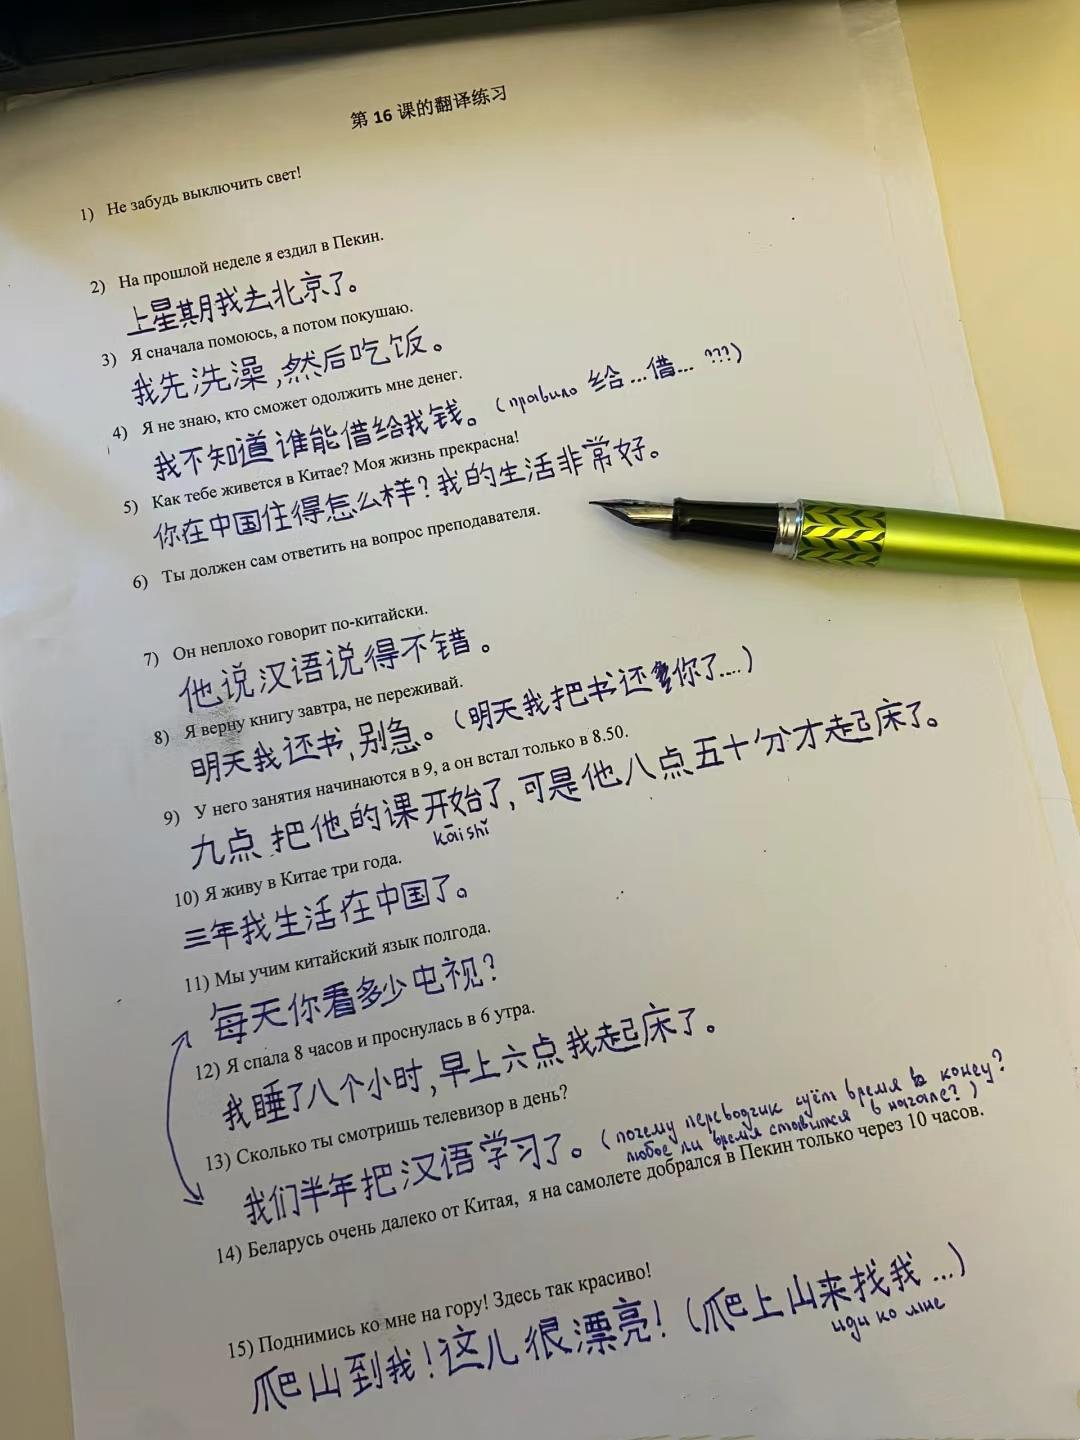 第 16 课的翻译练习
1) Не забудь выключить свет!
2) На прошлой неделе я ездил в Пекин.
上星期我去北京了。
3) Я сначала помоюсь, а потом покушаю.
我先洗澡,然后吃饭。
4) Я не знаю, кто сможет одолжить мне денег.
我不知道谁能借给我钱。(правило 给...借... ???)
5) Как тебе живется в Китае? Моя жизнь прекрасна!
你在中国住得怎么样?我的生活非常好。
6) Ты должен сам ответить на вопрос преподавателя.
7) Он неплохо говорит по-китайски.
他说汉语说得不错。
8) Я верну книгу завтра, не переживай.
明天我还书,别急。(明天我把书还你了....)
9) У него занятия начинаются в 9, а он встал только в 8.50.
九点把他的课开始了,可是他八点五十分才起床了。
kāishǐ
10) Я живу в Китае три года.
三年我生活在中国了。
11) Мы учим китайский язык полгода.
每天你看多少电视?
12) Я спала 8 часов и проснулась в 6 утра.
我睡了八个小时,早上六点我起床了。
13) Сколько ты смотришь телевизор в день?
我们半年把汉语学习了。(почему переводчик суёт время в конец?
любое ли время ставится в начале?)
14) Беларусь очень далеко от Китая, я на самолете добрался в Пекин только через 10 часов.
15) Поднимись ко мне на гору! Здесь так красиво!
爬山到我!这儿很漂亮!(爬上山来找我...)
иди ко мне